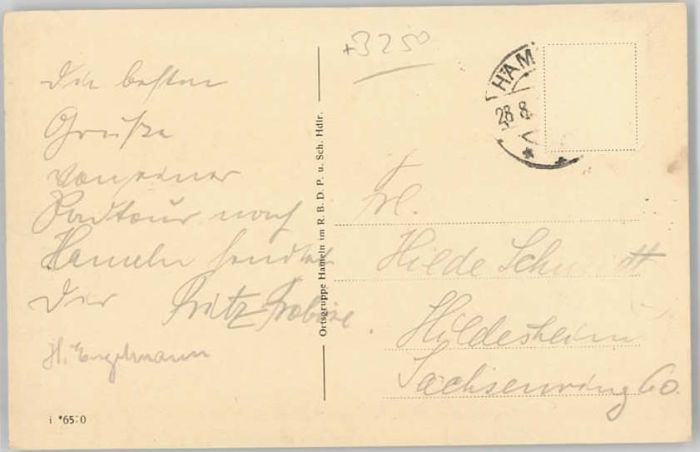 +3250
HAM
28 8
Die besten
Grüße
von einer
Radtour nach
Hameln sendet
Dir Fritz
H. Engelmann
Frl.
Hilde
Hildesheim
Sachsenring 60.
Ortsgruppe Hameln im R. B. D. P. u. Sch. Hdlr.
i *65:0